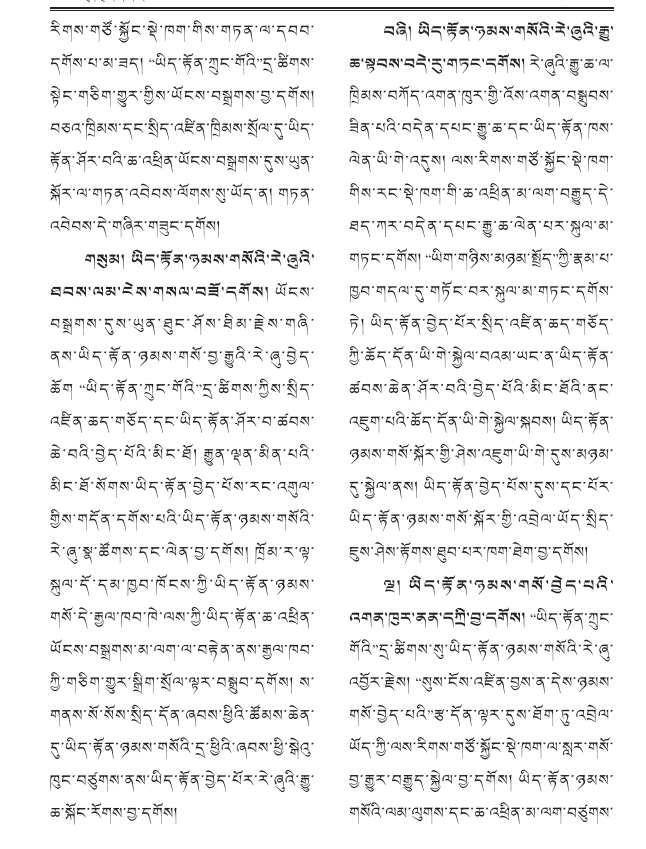 རིགས་གཙོ་སྐྱོང་སྡེ་ཁག་གིས་གཏན་ལ་དབབ་
དགོས་པ་མ་ཟད། “ཡིད་རྟོན་ཀྲུང་གོའི”དྲ་ཚིགས་
སྟེང་གཅིག་གྱུར་གྱིས་ཡོངས་བསྒྲགས་བྱ་དགོས།
བཅའ་ཁྲིམས་དང་སྲིད་འཛིན་ཁྲིམས་སྲོལ་དུ་ཡིད་
རྟོན་ཤོར་བའི་ཆ་འཕྲིན་ཡོངས་བསྒྲགས་དུས་ཡུན་
སྐོར་ལ་གཏན་འབེབས་ལོགས་སུ་ཡོད་ན། གཏན་
འབེབས་དེ་གཞིར་གཟུང་དགོས།
གསུམ། ཡིད་རྟོན་ཉམས་གསོའི་རེ་ཞུའི་
ཐབས་ལམ་ངེས་གསལ་བཟོ་དགོས། ཡོངས་
བསྒྲགས་དུས་ཡུན་ཐུང་ཤོས་ཐིམ་རྗེས་གཞི་
ནས་ཡིད་རྟོན་ཉམས་གསོ་བྱ་རྒྱུའི་རེ་ཞུ་བྱེད་
ཆོག “ཡིད་རྟོན་ཀྲུང་གོའི”དྲ་ཚིགས་ཀྱིས་སྲིད་
འཛིན་ཆད་གཅོད་དང་ཡིད་རྟོན་ཤོར་བ་ཚབས་
ཆེ་བའི་བྱེད་པོའི་མིང་ཐོ། རྒྱུན་ལྡན་མིན་པའི་
མིང་ཐོ་སོགས་ཡིད་རྟོན་བྱེད་པོས་རང་འགུལ་
གྱིས་གདོན་དགོས་པའི་ཡིད་རྟོན་ཉམས་གསོའི་
རེ་ཞུ་སྣ་ཚོགས་དང་ལེན་བྱ་དགོས། ཁྲོམ་ར་ལྟ་
སྐུལ་དོ་དམ་ཁྱབ་ཁོངས་ཀྱི་ཡིད་རྟོན་ཉམས་
གསོ་དེ་རྒྱལ་ཁབ་ཁེ་ལས་ཀྱི་ཡིད་རྟོན་ཆ་འཕྲིན་
ཡོངས་བསྒྲགས་མ་ལག་ལ་བརྟེན་ནས་རྒྱལ་ཁབ་
ཀྱི་གཅིག་གྱུར་སྒྲིག་སྲོལ་ལྟར་བསྒྲུབ་དགོས། ས་
གནས་སོ་སོས་སྲིད་དོན་ཞབས་ཕྱིའི་ཚོམས་ཆེན་
དུ་ཡིད་རྟོན་ཉམས་གསོའི་དྲ་ཕྱིའི་ཞབས་ཕྱི་སྒེའུ་
ཁུང་བཙུགས་ནས་ཡིད་རྟོན་བྱེད་པོར་རེ་ཞུའི་རྒྱུ་
ཆ་སྐོང་རོགས་བྱ་དགོས།
བཞི། ཡིད་རྟོན་ཉམས་གསོའི་རེ་ཞུའི་རྒྱུ་
ཆ་སྟབས་བདེ་རུ་གཏང་དགོས། རེ་ཞུའི་རྒྱུ་ཆ་ལ་
ཁྲིམས་བཀོད་འགན་ཁུར་གྱི་འོས་འགན་བསྒྲུབས་
ཟིན་པའི་བདེན་དཔང་རྒྱུ་ཆ་དང་ཡིད་རྟོན་ཁས་
ལེན་ཡི་གེ་འདུས། ལས་རིགས་གཙོ་སྐྱོང་སྡེ་ཁག་
གིས་རང་སྡེ་ཁག་གི་ཆ་འཕྲིན་མ་ལག་བརྒྱུད་དེ་
ཐད་ཀར་བདེན་དཔང་རྒྱུ་ཆ་ལེན་པར་སྐུལ་མ་
གཏང་དགོས། “ཡིག་གཉིས་མཉམ་སྤྲོད”ཀྱི་རྣམ་པ་
ཁྱབ་གདལ་དུ་གཏོང་བར་སྐུལ་མ་གཏང་དགོས་
ཏེ། ཡིད་རྟོན་བྱེད་པོར་སྲིད་འཛིན་ཆད་གཅོད་
ཀྱི་ཆོད་དོན་ཡི་གེ་སྐྱེལ་བའམ་ཡང་ན་ཡིད་རྟོན་
ཚབས་ཆེན་ཤོར་བའི་བྱེད་པོའི་མིང་ཐོའི་ནང་
འཇུག་པའི་ཆོད་དོན་ཡི་གེ་སྐྱེལ་སྐབས། ཡིད་རྟོན་
ཉམས་གསོ་སྐོར་གྱི་ཤེས་འཇུག་ཡི་གེ་དུས་མཉམ་
དུ་སྐྱེལ་ནས། ཡིད་རྟོན་བྱེད་པོས་དུས་དང་པོར་
ཡིད་རྟོན་ཉམས་གསོ་སྐོར་གྱི་འབྲེལ་ཡོད་སྲིད་
ཇུས་ཤེས་རྟོགས་ཐུབ་པར་ཁག་ཐེག་བྱ་དགོས།
ལྔ། ཡིད་རྟོན་ཉམས་གསོ་བྱེད་པའི་
འགན་ཁུར་ནན་དཀྲི་བྱ་དགོས། “ཡིད་རྟོན་ཀྲུང་
གོའི”དྲ་ཚིགས་སུ་ཡིད་རྟོན་ཉམས་གསོའི་རེ་ཞུ་
འབྱོར་རྗེས། “སུས་ངོས་འཛིན་བྱས་ན་དེས་ཉམས་
གསོ་བྱེད་པའི”རྩ་དོན་ལྟར་དུས་ཐོག་ཏུ་འབྲེལ་
ཡོད་ཀྱི་ལས་རིགས་གཙོ་སྐྱོང་སྡེ་ཁག་ལ་སླར་གསོ་
བྱ་རྒྱུར་བརྒྱུད་སྐྱེལ་བྱ་དགོས། ཡིད་རྟོན་ཉམས་
གསོའི་ལམ་ལུགས་དང་ཆ་འཕྲིན་མ་ལག་བཙུགས་